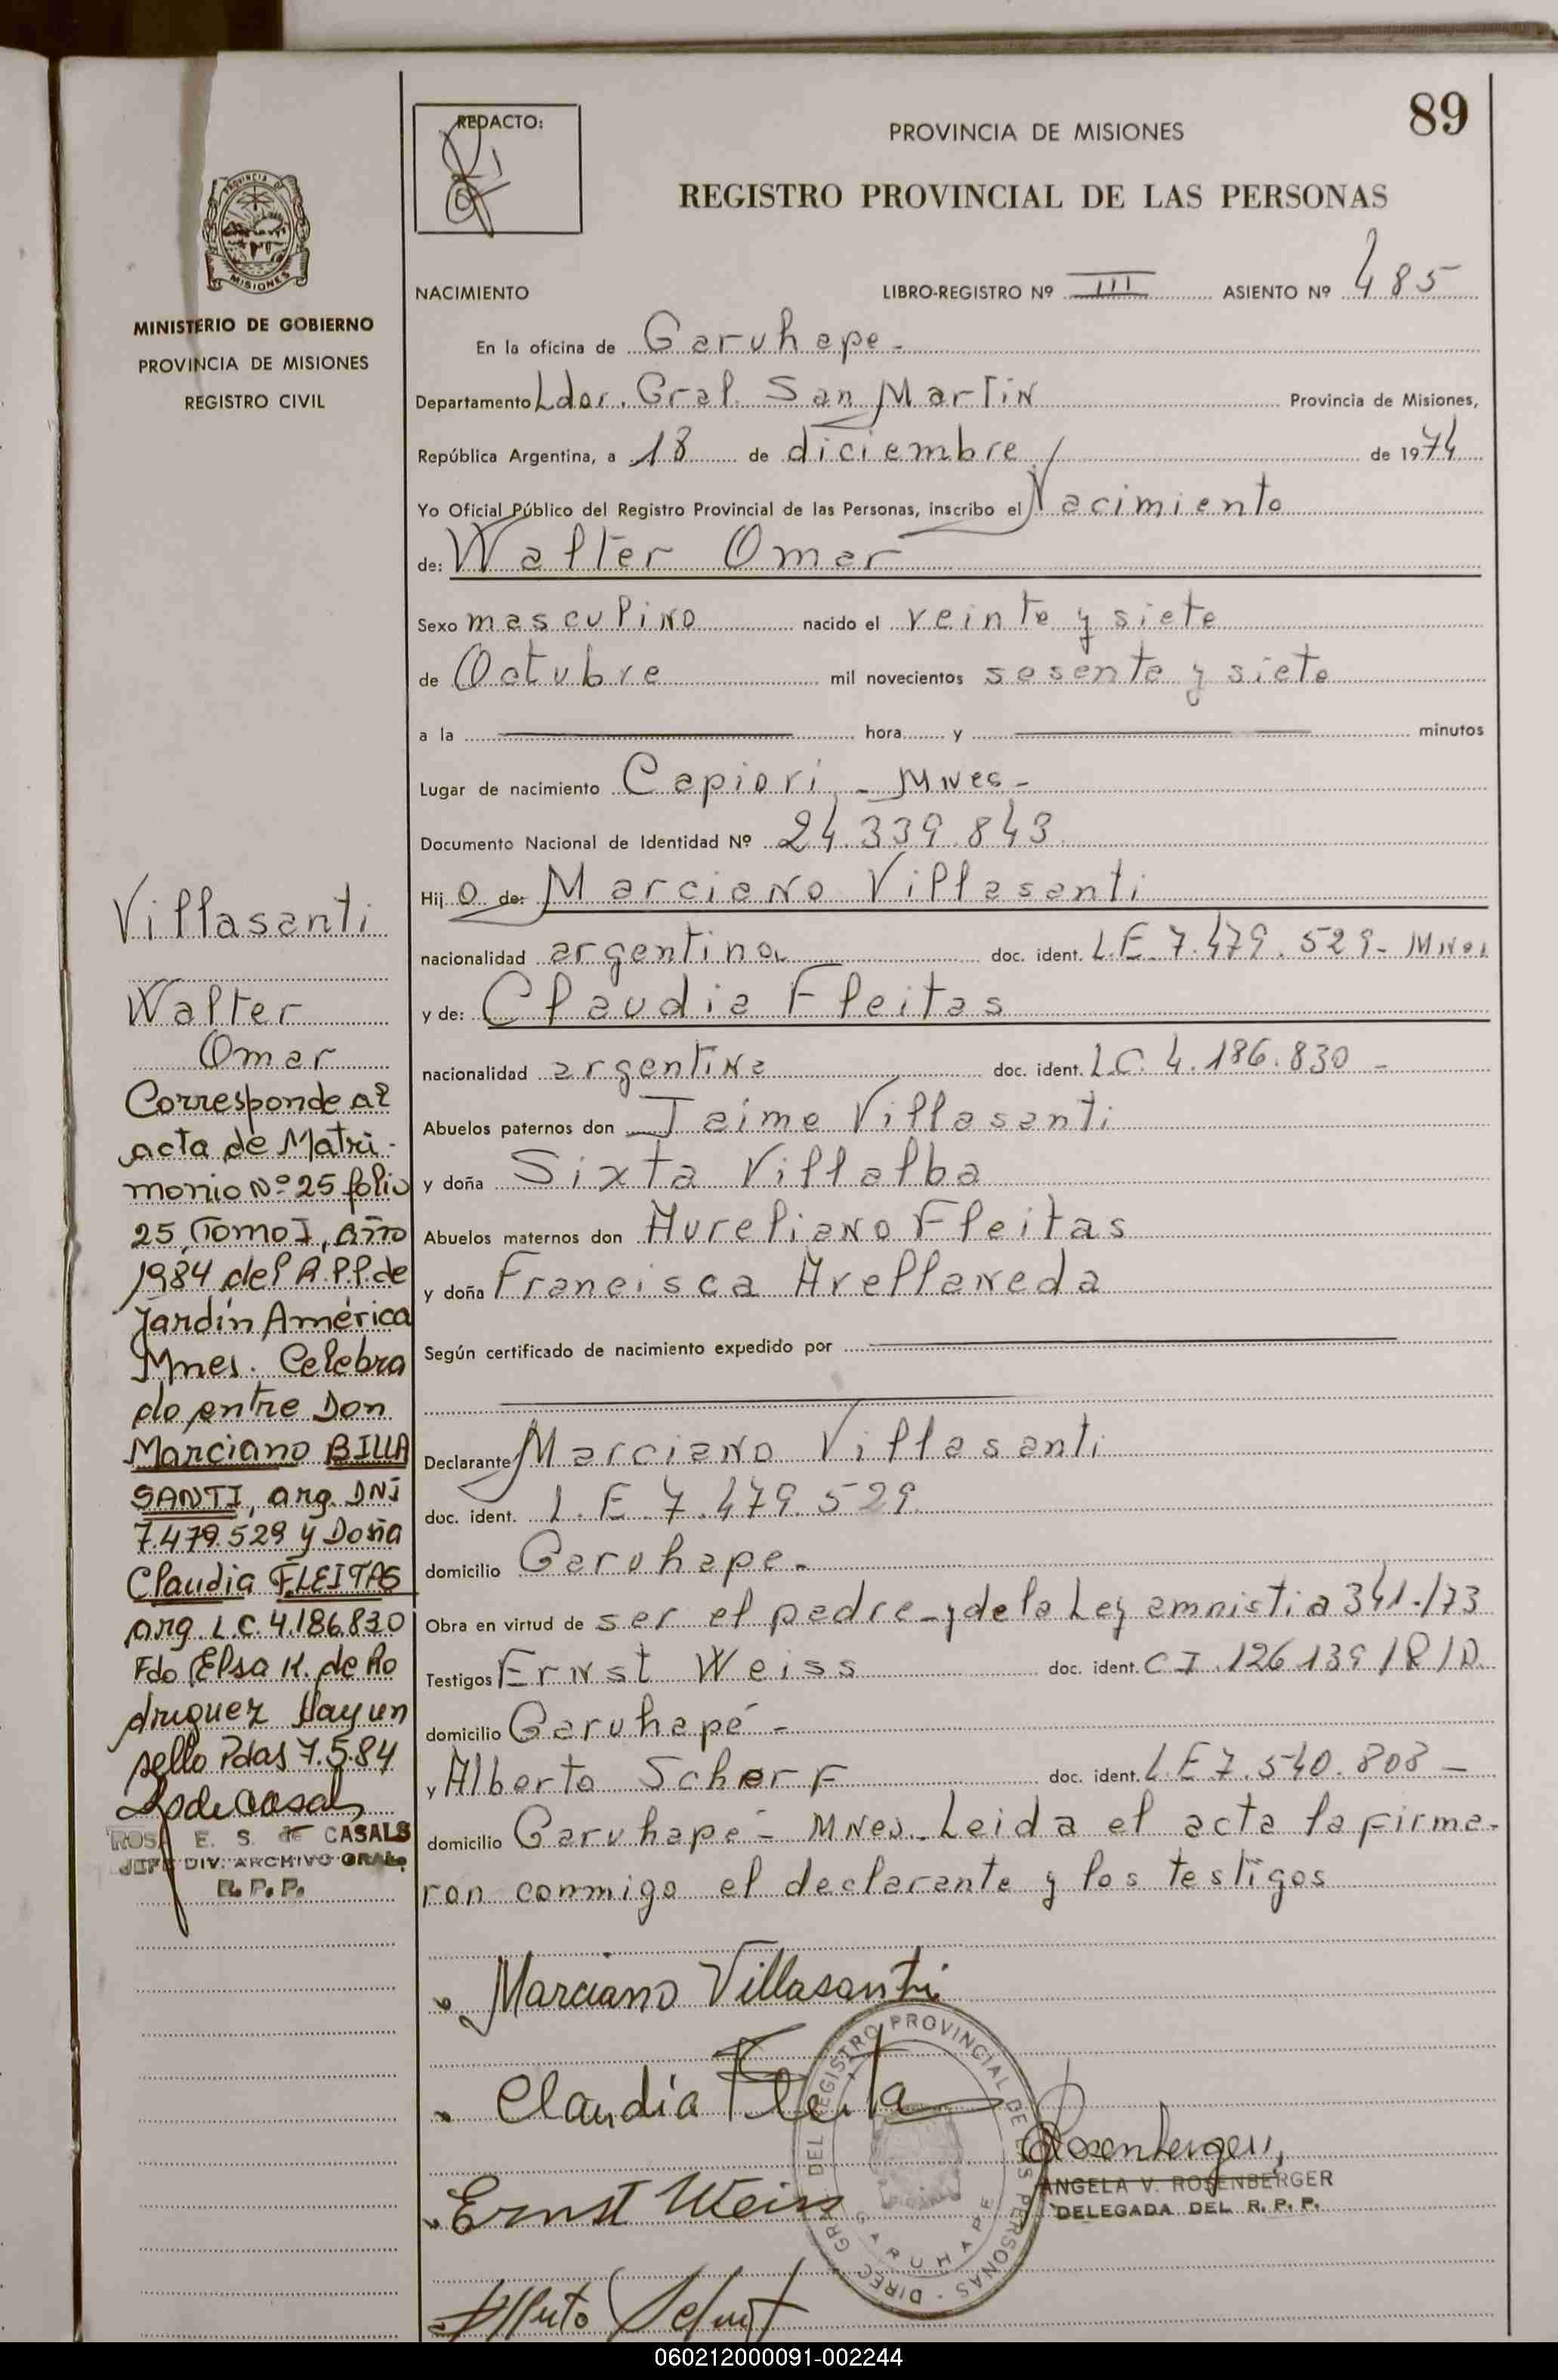 89
REDACTO:
PROVINCIA DE MISIONES
REGISTRO PROVINCIAL DE LAS PERSONAS
PROVINCIA DE
MISIONES
MINISTERIO DE GOBIERNO
PROVINCIA DE MISIONES
REGISTRO CIVIL
NACIMIENTO LIBRO-REGISTRO Nº III ASIENTO Nº 485
En la oficina de Garuhape -
Departamento Ldor. Gral. San Martin Provincia de Misiones,
República Argentina, a 18 de diciembre / de 1974
Yo Oficial Público del Registro Provincial de las Personas, inscribo el Nacimiento
de: Walter Omar
Sexo masculino nacido el veinte y siete
de Octubre mil novecientos sesenta y siete
a la hora y minutos
Lugar de nacimiento Capiovi - Mnes -
Documento Nacional de Identidad Nº 24.339.843
Hij o de: Marciano Villasanti
nacionalidad argentina doc. ident. L.E. 7.479.529 - Mnes
y de: Claudia Fleitas
nacionalidad argentina doc. ident. L.C. 4.186.830 -
Abuelos paternos don Jaime Villasanti
y doña Sixta Villalba
Abuelos maternos don Aureliano Fleitas
y doña Francisca Avellaneda
Según certificado de nacimiento expedido por
Declarante Marciano Villasanti
doc. ident. L.E. 7.479.529
domicilio Garuhape -
Obra en virtud de ser el padre - y de la Ley amnistia 341-/73
Testigos Ernst Weiss doc. ident. C.I. 126139/R/D.
domicilio Garuhapé -
y Alberto Scherf doc. ident. L.E 7.540.808 -
domicilio Garuhapé - Mnes. - Leida el acta la firma-
ron conmigo el declarante y los testigos
Villasanti
Walter
Omar
Corresponde al
acta de Matri-
monio Nº 25 folio
25, Tomo I, Año
1984 del R.P.P. de
Jardín América
Mnes. Celebra
do entre Don
Marciano BILLA
SANTI, arg. DNI
7.479.529 y Doña
Claudia FLEITAS
arg. L.C. 4.186.830
Fdo Elsa K. de Ro
driguez Hay un
sello Pdas 7.5.84
ROSA E. S. de CASALS
JEFE DIV. ARCHIVO GRAL.
R. P. P.
Marciano Villasanti
Claudia Fleita
Ernst Weiss
Rosenberger
ANGELA V. ROSENBERGER
DELEGADA DEL R. P. P.
DIREC. GRAL. DEL REGISTRO PROVINCIAL DE LAS PERSONAS -
GARUHAPE
060212000091-002244